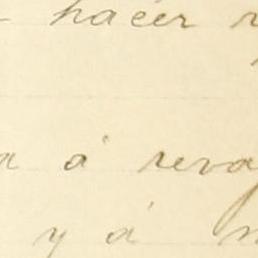 hacer
a á reva
y á